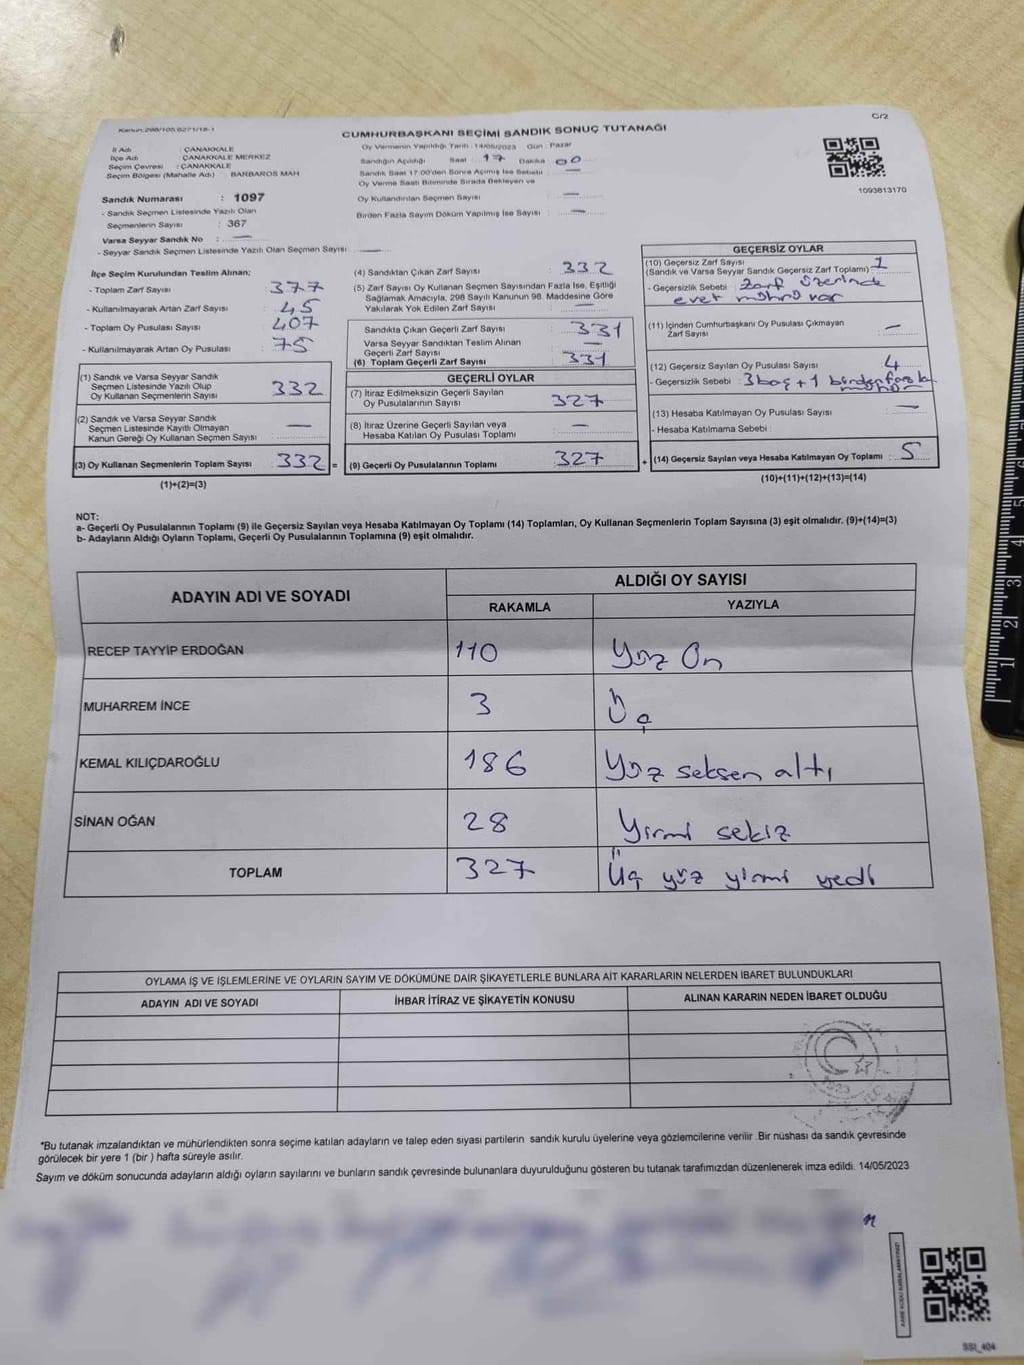 Kanun:298/105,6271/18-1
C/2
CUMHURBAŞKANI SEÇİMİ SANDIK SONUÇ TUTANAĞI
İl Adı : ÇANAKKALE
İlçe Adı : ÇANAKKALE MERKEZ
Seçim Çevresi : ÇANAKKALE
Seçim Bölgesi (Mahalle Adı) : BARBAROS MAH
Sandık Numarası : 1097
- Sandık Seçmen Listesinde Yazılı Olan
Seçmenlerin Sayısı : 367
Varsa Seyyar Sandık No : —
- Seyyar Sandık Seçmen Listesinde Yazılı Olan Seçmen Sayısı : —
Oy Vermenin Yapıldığı Tarih :14/05/2023 Gün : Pazar
Sandığın Açıldığı Saat : 17 Dakika : 00
Sandık Saat 17:00'den Sonra Açılmış İse Sebebi : —
Oy Verme Saati Bitiminde Sırada Bekleyen ve
Oy Kullandırılan Seçmen Sayısı : —
Birden Fazla Sayım Döküm Yapılmış İse Sayısı : —
1093813170
İlçe Seçim Kurulundan Teslim Alınan;
- Toplam Zarf Sayısı : 377
- Kullanılmayarak Artan Zarf Sayısı : 45
- Toplam Oy Pusulası Sayısı : 407
- Kullanılmayarak Artan Oy Pusulası : 75
(1) Sandık ve Varsa Seyyar Sandık
Seçmen Listesinde Yazılı Olup
Oy Kullanan Seçmenlerin Sayısı : 332
(2) Sandık ve Varsa Seyyar Sandık
Seçmen Listesinde Kayıtlı Olmayan
Kanun Gereği Oy Kullanan Seçmen Sayısı : —
(3) Oy Kullanan Seçmenlerin Toplam Sayısı : 332 =
(1)+(2)=(3)
(4) Sandıktan Çıkan Zarf Sayısı : 332
(5) Zarf Sayısı Oy Kullanan Seçmen Sayısından Fazla İse, Eşitliği
Sağlamak Amacıyla, 298 Sayılı Kanunun 98. Maddesine Göre
Yakılarak Yok Edilen Zarf Sayısı : —
Sandıkta Çıkan Geçerli Zarf Sayısı : 331
Varsa Seyyar Sandıktan Teslim Alınan
Geçerli Zarf Sayısı : —
(6) Toplam Geçerli Zarf Sayısı : 331
GEÇERLİ OYLAR
(7) İtiraz Edilmeksizin Geçerli Sayılan
Oy Pusulalarının Sayısı : 327
(8) İtiraz Üzerine Geçerli Sayılan veya
Hesaba Katılan Oy Pusulası Toplamı : —
(9) Geçerli Oy Pusulalarının Toplamı : 327 +
GEÇERSİZ OYLAR
(10) Geçersiz Zarf Sayısı
(Sandık ve Varsa Seyyar Sandık Geçersiz Zarf Toplamı) : 1
- Geçersizlik Sebebi : Zarf üzerinde
evet mührü var
(11) İçinden Cumhurbaşkanı Oy Pusulası Çıkmayan
Zarf Sayısı : —
(12) Geçersiz Sayılan Oy Pusulası Sayısı : 4
- Geçersizlik Sebebi : 3 boş + 1 birden fazla
mühür
(13) Hesaba Katılmayan Oy Pusulası Sayısı : —
- Hesaba Katılmama Sebebi :
(14) Geçersiz Sayılan veya Hesaba Katılmayan Oy Toplamı : 5
(10)+(11)+(12)+(13)=(14)
NOT:
a- Geçerli Oy Pusulalarının Toplamı (9) ile Geçersiz Sayılan veya Hesaba Katılmayan Oy Toplamı (14) Toplamları, Oy Kullanan Seçmenlerin Toplam Sayısına (3) eşit olmalıdır. (9)+(14)=(3)
b- Adayların Aldığı Oyların Toplamı, Geçerli Oy Pusulalarının Toplamına (9) eşit olmalıdır.
ADAYIN ADI VE SOYADI
ALDIĞI OY SAYISI
RAKAMLA YAZIYLA
RECEP TAYYİP ERDOĞAN 110 Yüz On
MUHARREM İNCE 3 Üç
KEMAL KILIÇDAROĞLU 186 Yüz seksen altı
SİNAN OĞAN 28 Yirmi sekiz
TOPLAM 327 Üç yüz yirmi yedi
OYLAMA İŞ VE İŞLEMLERİNE VE OYLARIN SAYIM VE DÖKÜMÜNE DAİR ŞİKAYETLERLE BUNLARA AİT KARARLARIN NELERDEN İBARET BULUNDUKLARI
ADAYIN ADI VE SOYADI İHBAR İTİRAZ VE ŞİKAYETİN KONUSU ALINAN KARARIN NEDEN İBARET OLDUĞU
*Bu tutanak imzalandıktan ve mühürlendikten sonra seçime katılan adayların ve talep eden siyasi partilerin sandık kurulu üyelerine veya gözlemcilerine verilir .Bir nüshası da sandık çevresinde
görülecek bir yere 1 (bir ) hafta süreyle asılır.
Sayım ve döküm sonucunda adayların aldığı oyların sayılarını ve bunların sandık çevresinde bulunanlara duyurulduğunu gösteren bu tutanak tarafımızdan düzenlenerek imza edildi. 14/05/2023
1 2 3 4 5